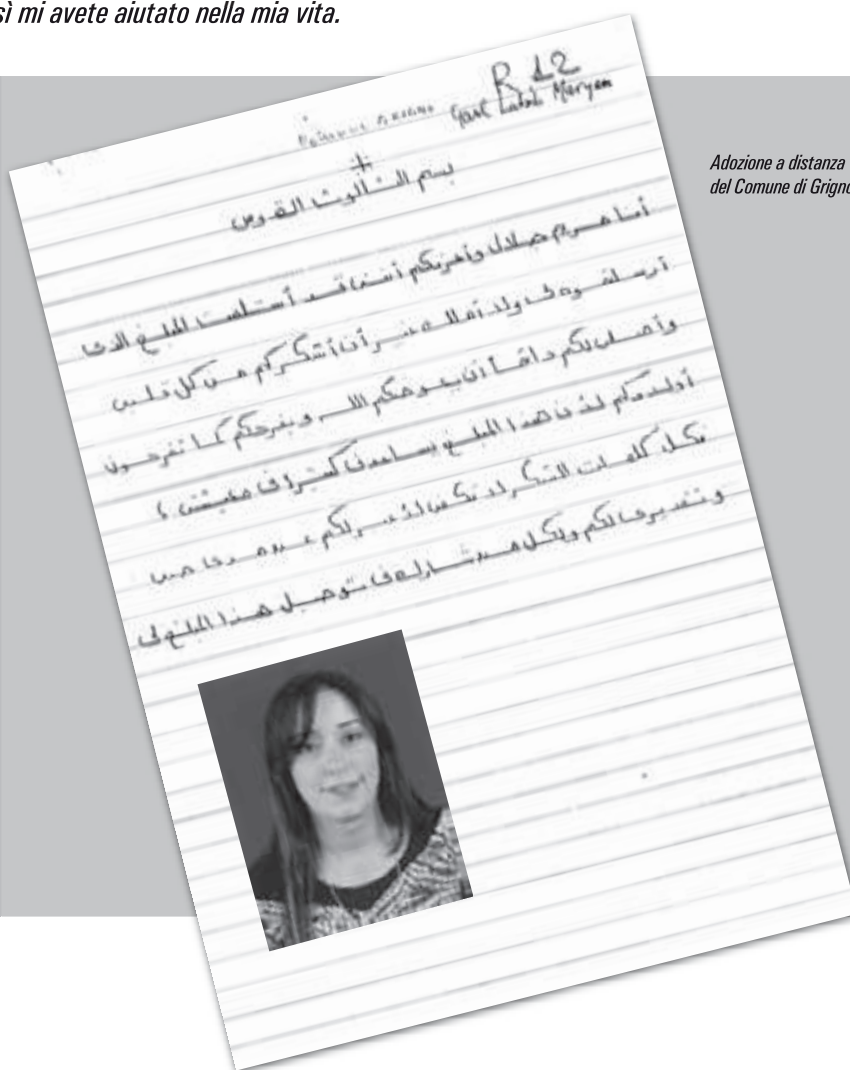 sì mi avete aiutato nella mia vita.
Adozione a distanza
del Comune di Grigno
R 12
Maryem
بسم الثالوث القدوس
أنا مريم جلال وأخبركم أننى قد أستلمت المبلغ الذى
أرسلتموه لى ولا أملك غير أن أشكركم من كل قلبى
وأصلى لكم دائماً أن يعوضكم الله ويفرحكم كما تفرحون
أولادكم لأن هذا المبلغ يساعدنى كثيراً فى معيشتى ؟
فكل كلمات الشكر لا تكفى
وتقديرى لكم ولكل من شارك فى توصيل هذا المبلغ لى